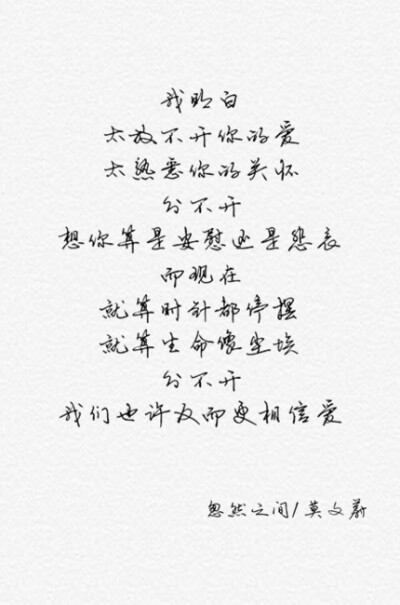 我明白
太放不开你的爱
太熟悉你的关怀
分不开
想你算是安慰还是悲哀
而现在
就算时针都停摆
就算生命像尘埃
分不开
我们也许反而更相信爱
忽然之间/莫文蔚